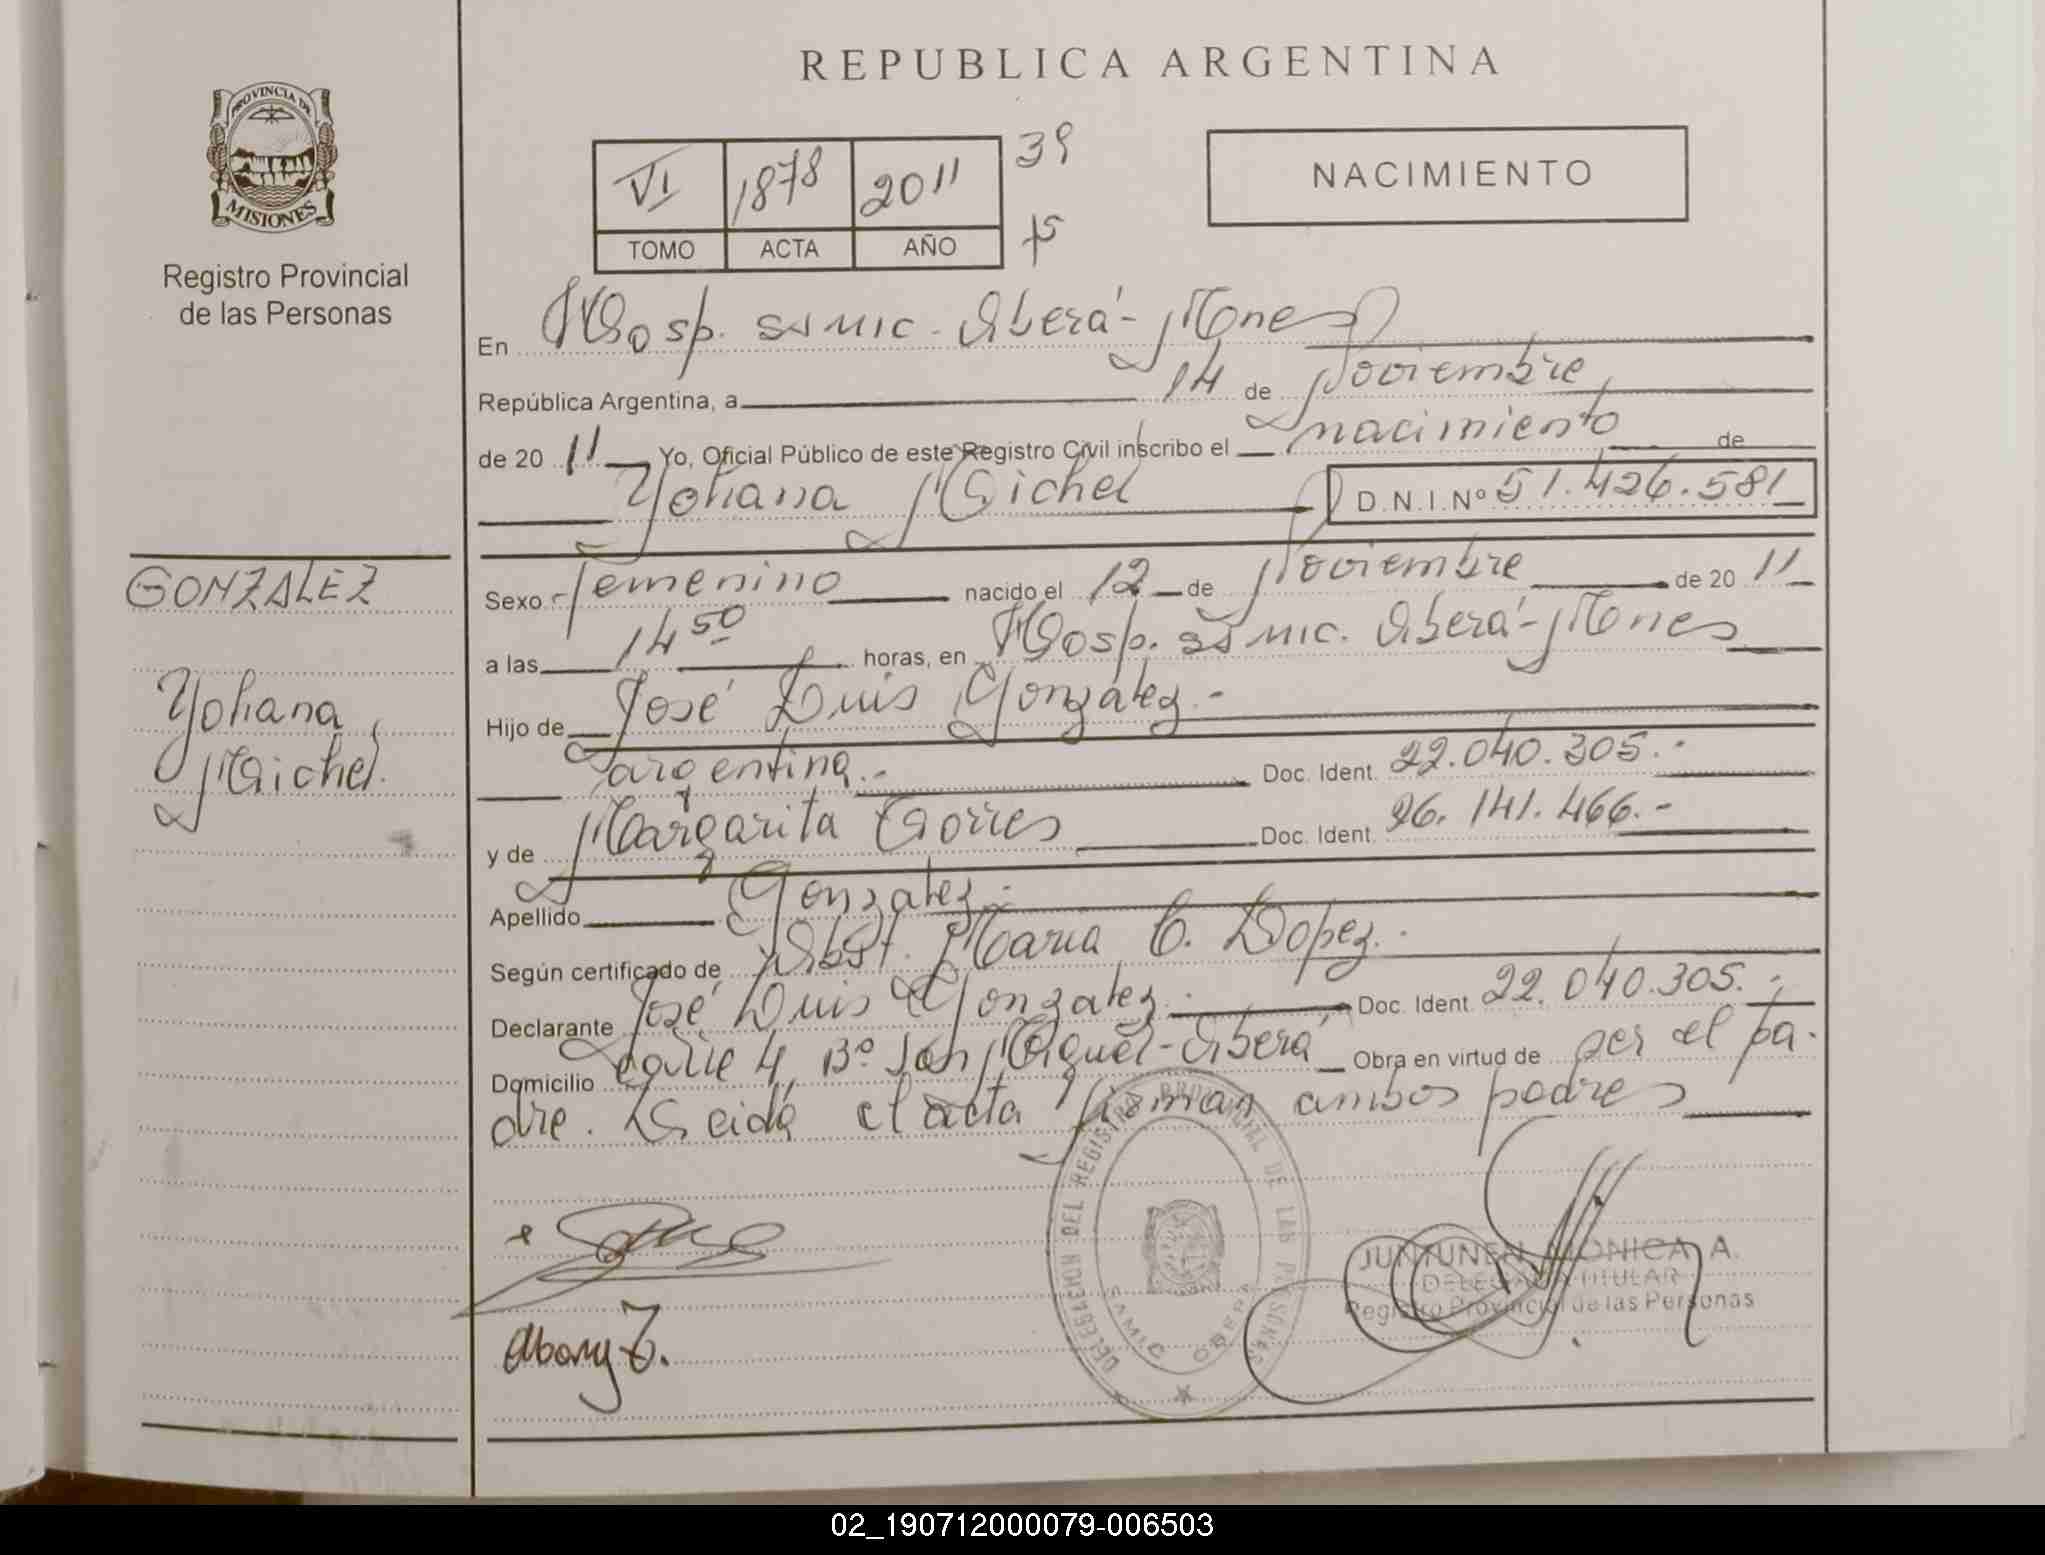 REPUBLICA ARGENTINA
PROVINCIA DE
MISIONES
Registro Provincial
de las Personas
VI 1878 2011
TOMO ACTA AÑO
NACIMIENTO
En Hosp. SAMIC - Oberá - Mnes
República Argentina, a 14 de Noviembre
de 2011 Yo, Oficial Público de este Registro Civil inscribo el nacimiento de
Yohana Maichel D.N.I.Nº 51.426.581
GONZALEZ
Yohana
Maichel.
Sexo femenino nacido el 12 de Noviembre de 2011
a las 14 50 horas, en Hosp. SAMIC. Oberá - Mnes
Hijo de José Luis González.-
argentina.- Doc. Ident. 22.040.305.-
y de Margarita Torres Doc. Ident. 96.141.466.-
Apellido Gonzalez.-
Según certificado de Obst. Maria C. Lopez.-
Declarante José Luis Gonzalez.- Doc. Ident. 22.040.305.-
Domicilio Calle 4, Bº San Miguel - Oberá Obra en virtud de ser el pa-
dre. Leida el acta firman ambos padres
DELEGACION DEL REGISTRO PROVINCIAL DE LAS PERSONAS
SAMIC OBERA
JUNTUNEN MONICA A.
DELEGADA TITULAR
Registro Provincial de las Personas
02_190712000079-006503